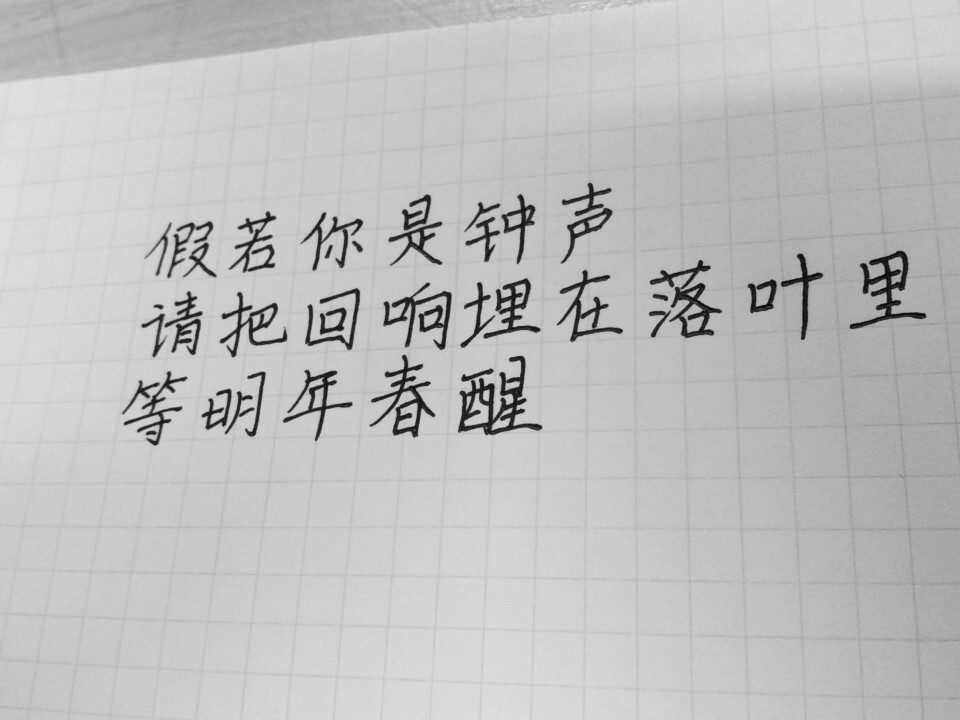 假若你是钟声
请把回响埋在落叶里
等明年春醒